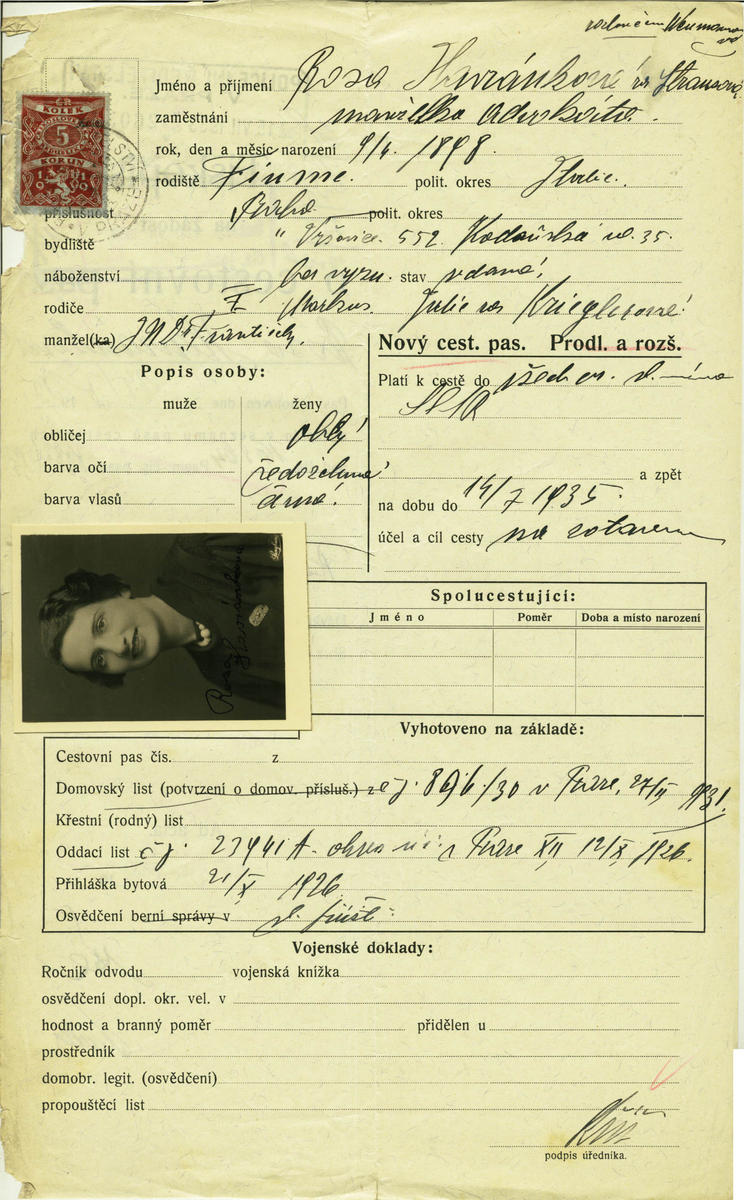 Jméno a příjmení Rosa Havránková roz. Strausová
zaměstnání manželka advokáta.
rok, den a měsíc narození 9/4. 1898.
rodiště Fiume. polit. okres Italie.
příslušnost Praha polit. okres
bydliště " Vršovice 552 Kodaňská ul. 35.
náboženství bez vyzn. stav vdaná,
rodiče Markus. Julie roz
manžel(ka) JUDr František.
Nový cest. pas. Prodl. a rozš.
Popis osoby:
Platí k cestě do všech ev.
muže ženy
obličej oblý
barva očí šedozelená
a zpět
barva vlasů černá
na dobu do 14/7 1935.
účel a cíl cesty na zotavenou
KOLEK
5
KORUN
Rosa Havránková
Spolucestující:
Jméno Poměr Doba a místo narození
Vyhotoveno na základě:
Cestovní pas čís. z
Domovský list (potvrzení o domov. přísluš.) z čj. 8096/30 v Praze, 27/II 1931.
Křestní (rodný) list
Oddací list čj. 23941 A. v Praze XII 12/X 1926.
Přihláška bytová 21/X 1926
Osvědčení berní správy v
Vojenské doklady:
Ročník odvodu vojenská knížka
osvědčení dopl. okr. vel. v
hodnost a branný poměr přidělen u
prostředník
domobr. legit. (osvědčení)
propouštěcí list
podpis úředníka.